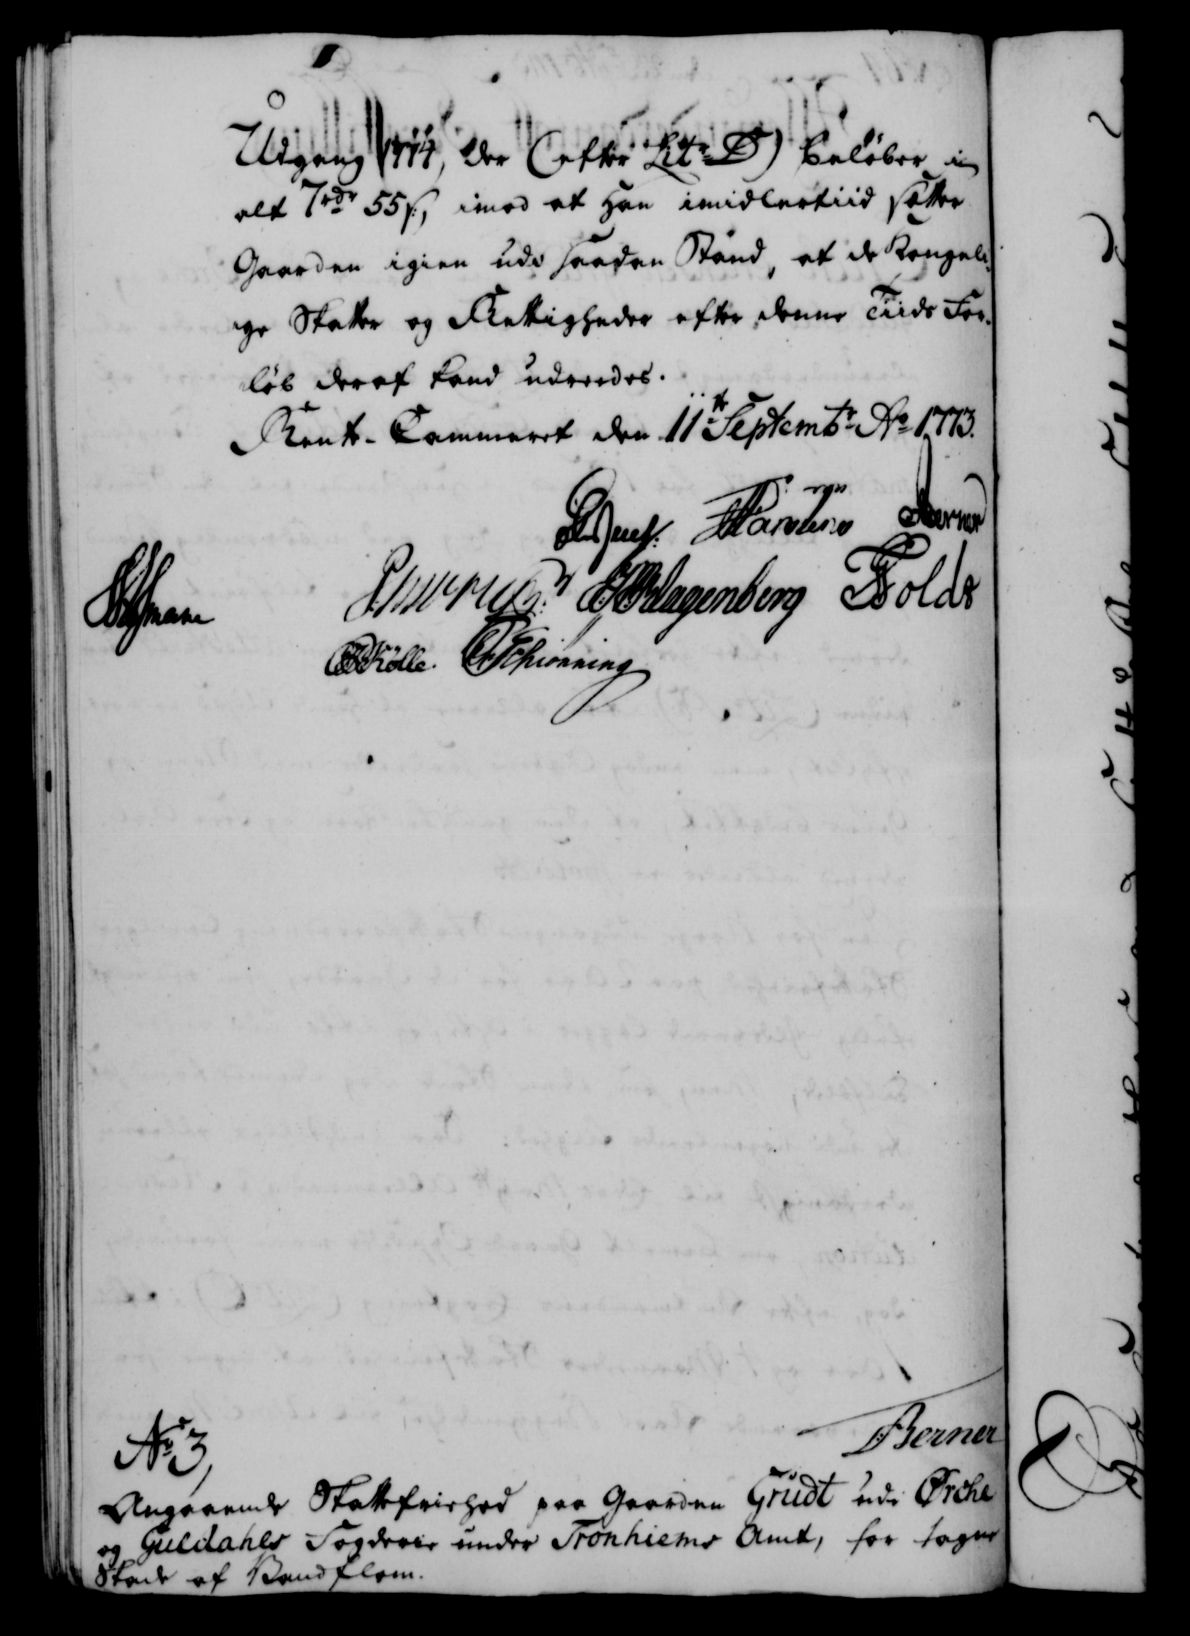 Udgang 1774, der (efter Litr D) beløber in
alt 7 rdr 55 s, imod at han imidlertiid sætter
Gaarden igien udi saadan Stand, at de Kongeli-
ge Skatter og Rettigheder efter denne Tiids For-
løb deraf kand udreedes.
Rente-Cammeret den 11te Septembr Ao 1773.
Berner
Klagenberg Holdt
Kölle. Schionning
Berner
No 3,
Angaaende Skattefriehed paa Gaarden Grudt udi Ørche
og Guldahls Fogderie under Tronhiems Amt, for tagne
Skade af Vandflom.